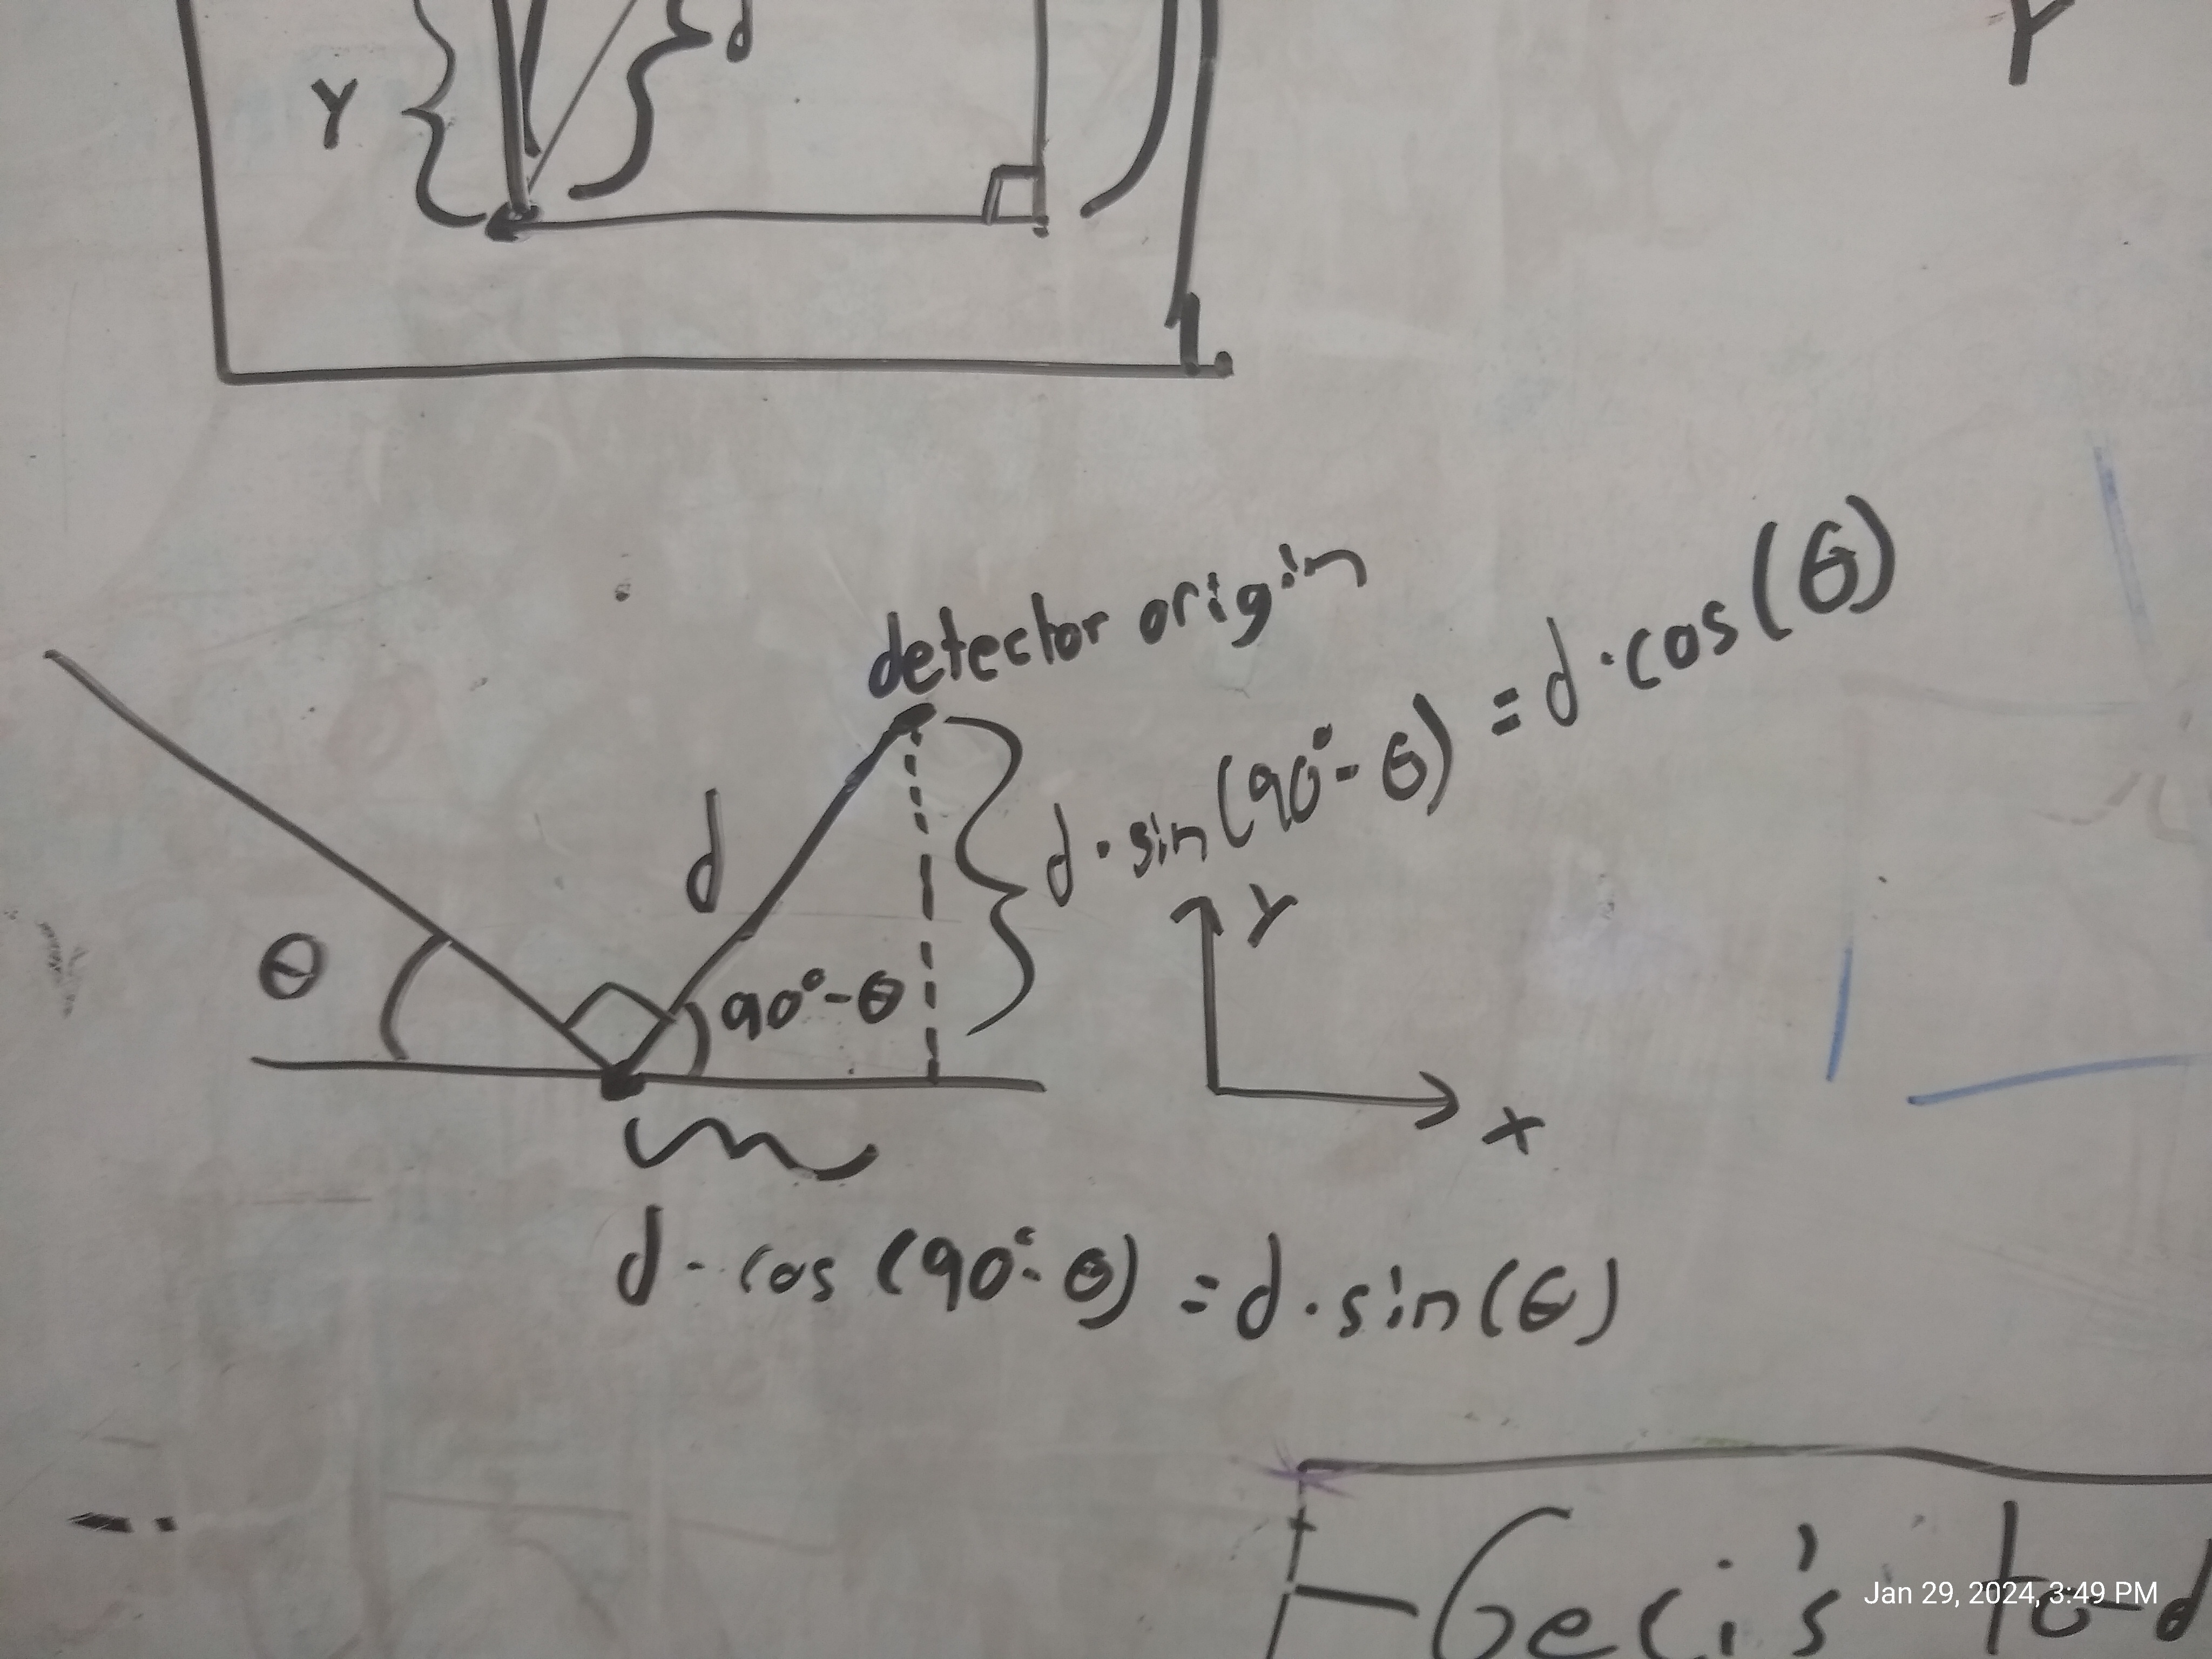 Y
d
Y
detector origin
d · sin (90° - θ) = d · cos (θ)
d
Y
θ
90° - θ
x
d · cos (90° - θ) = d · sin (θ)
Jan 29, 2024, 3:49 PM
to-d